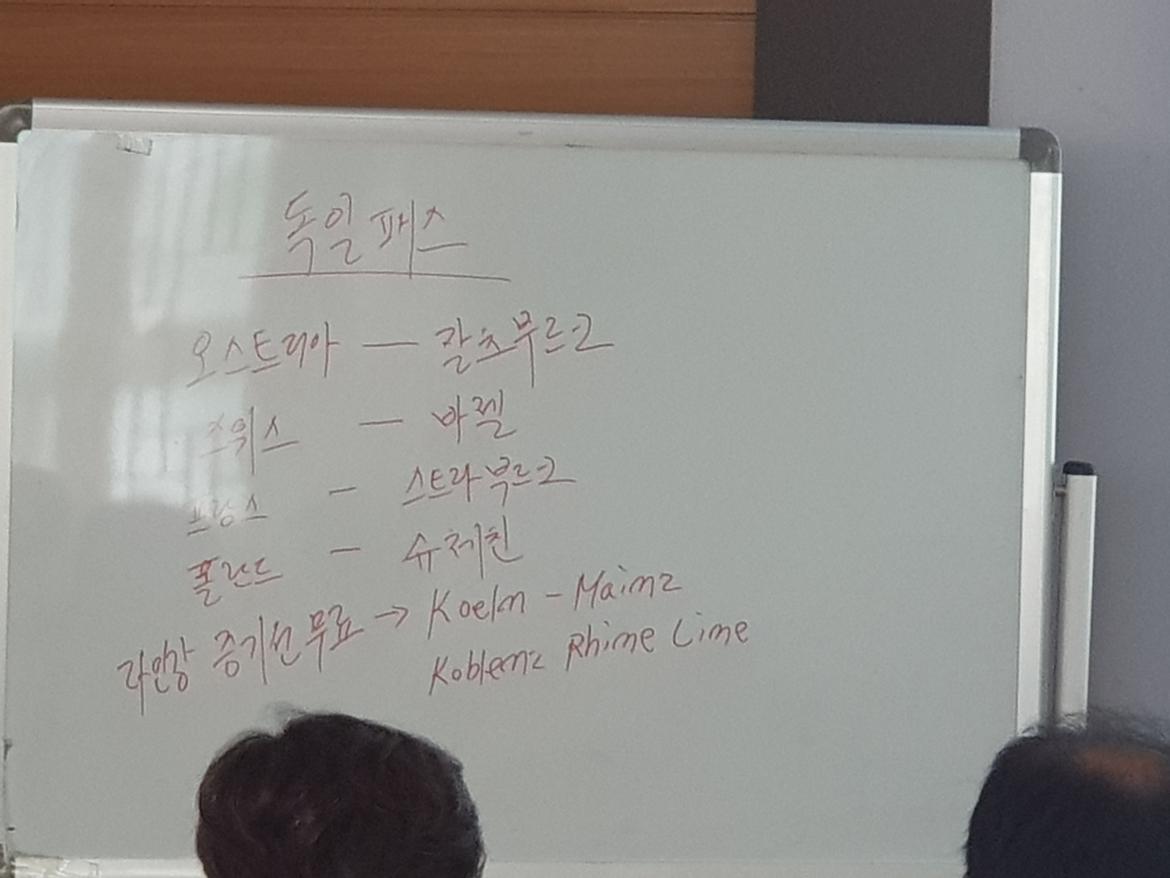 독일 패스
오스트리아 — 잘츠부르크
스위스 — 바젤
프랑스 — 스트라부르크
폴란드 — 슈체친
라인강 증기선 무료 → Koeln - Mainz
Koblenz Rhine Line